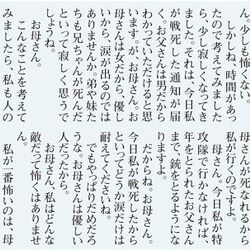 ん少しも怖くない。
しかし、時間があっ
たので考えてみました
ら、少し寂しくなってき
ました。それは、今日私
が戦死した通知が届
く。お父さんは男だから
わかっていただけると思
います。が、お母さん。お
母さんは女だから、優し
いから、涙が出るのでは
ありませんか。弟や妹た
ちも兄ちゃんが死んだ
といって寂しく思うで
しょうね。
お母さん。
こんなことを考えて
みましたら、私も人の
母さんが死
私が行くのですよ。
母さん。今日私が特
攻隊で行かなければ、
年をとられたお父さん
まで、銃をとるようにな
りますよ。
だからね。お母さん。
今日私が戦死したから
といってどうか涙だけは
耐えてくださいね。
でもやっぱりだめだろ
うな。お母さんは優しい
人だったから。
お母さん、私はどんな
敵だって怖くはありませ
ん。
私が一番怖いのは、母